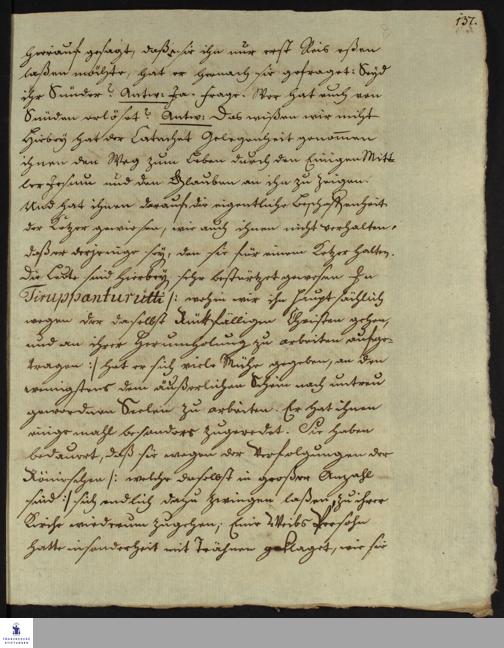 137.
hierauf gesagt, daß sie ihn nur erst Reis eßen
laßen möchte, hat er hernach sie gefraget: Seyd
ihr Sünder? Antw: Ja. Frage. Wer hat euch von
Sünden erlöset? Antw: Das wißen wir nicht
Hierbey hat der Catechet Gelegenheit genommen
ihnen den Weg zum Leben durch den Einigen Mitt-
ler Jesum und den Glauben an ihn zu zeigen.
Und hat ihnen darauf die eigentliche Beschaffenheit
der Ketzer gewiesen, wie auch ihnen nicht verhalten,
daß er derjenige sey, den sie für einen Ketzer halten.
Die Leute sind hierbey sehr bestürtzet gewesen In
Tiruppanturutti /: wohin wir ihn hauptsächlich
wegen der daselbst Rückfälligen Christen gehen,
und an ihrer Herumholung zu arbeiten aufge-
tragen :/ hat er sich viele Mühe gegeben, an den
wenigstens dem äußerlichen Schein nach untreu
gewordenen Seelen zu arbeiten. Er hat ihnen
einigemahl besonders zugeredet. Sie haben
bedauert, daß sie wegen der Verfolgungen der
Römischen /: welche daselbst in großer Anzahl
sind :/ sich endlich dazu zwingen laßen, zu ihrer
Kirche wiederum zugehen; Eine Weibs Persohn
hatte insonderheit mit Trähnen geklaget, wie sie
FRANCKESCHE
STIFTUNGEN